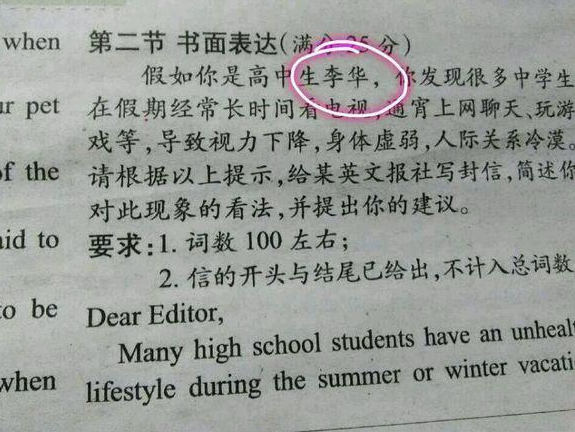 when
ur pet
of the
aid to
to be
when
第二节 书面表达(满分25分)
假如你是高中生李华，你发现很多中学生
在假期经常长时间看电视,通宵上网聊天、玩游
戏等,导致视力下降,身体虚弱,人际关系冷漠。
请根据以上提示,给某英文报社写封信,简述你
对此现象的看法,并提出你的建议。
要求:1. 词数 100 左右;
2. 信的开头与结尾已给出,不计入总词数
Dear Editor,
Many high school students have an unheal
lifestyle during the summer or winter vacati